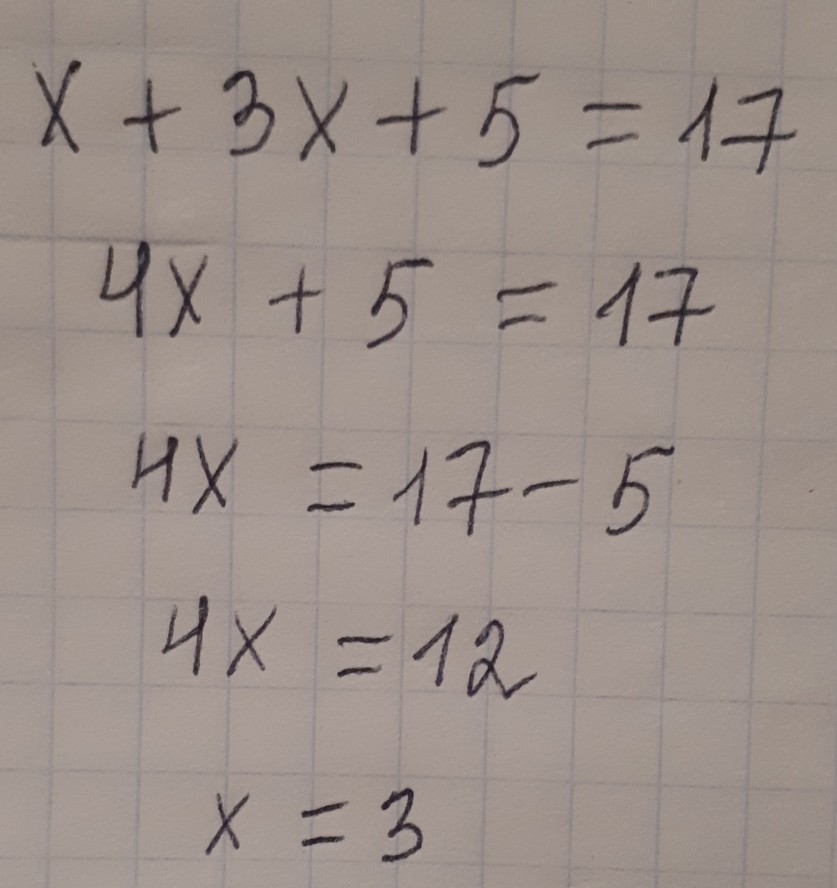 x + 3x + 5 = 17
4x + 5 = 17
4x = 17 - 5
4x = 12
x = 3